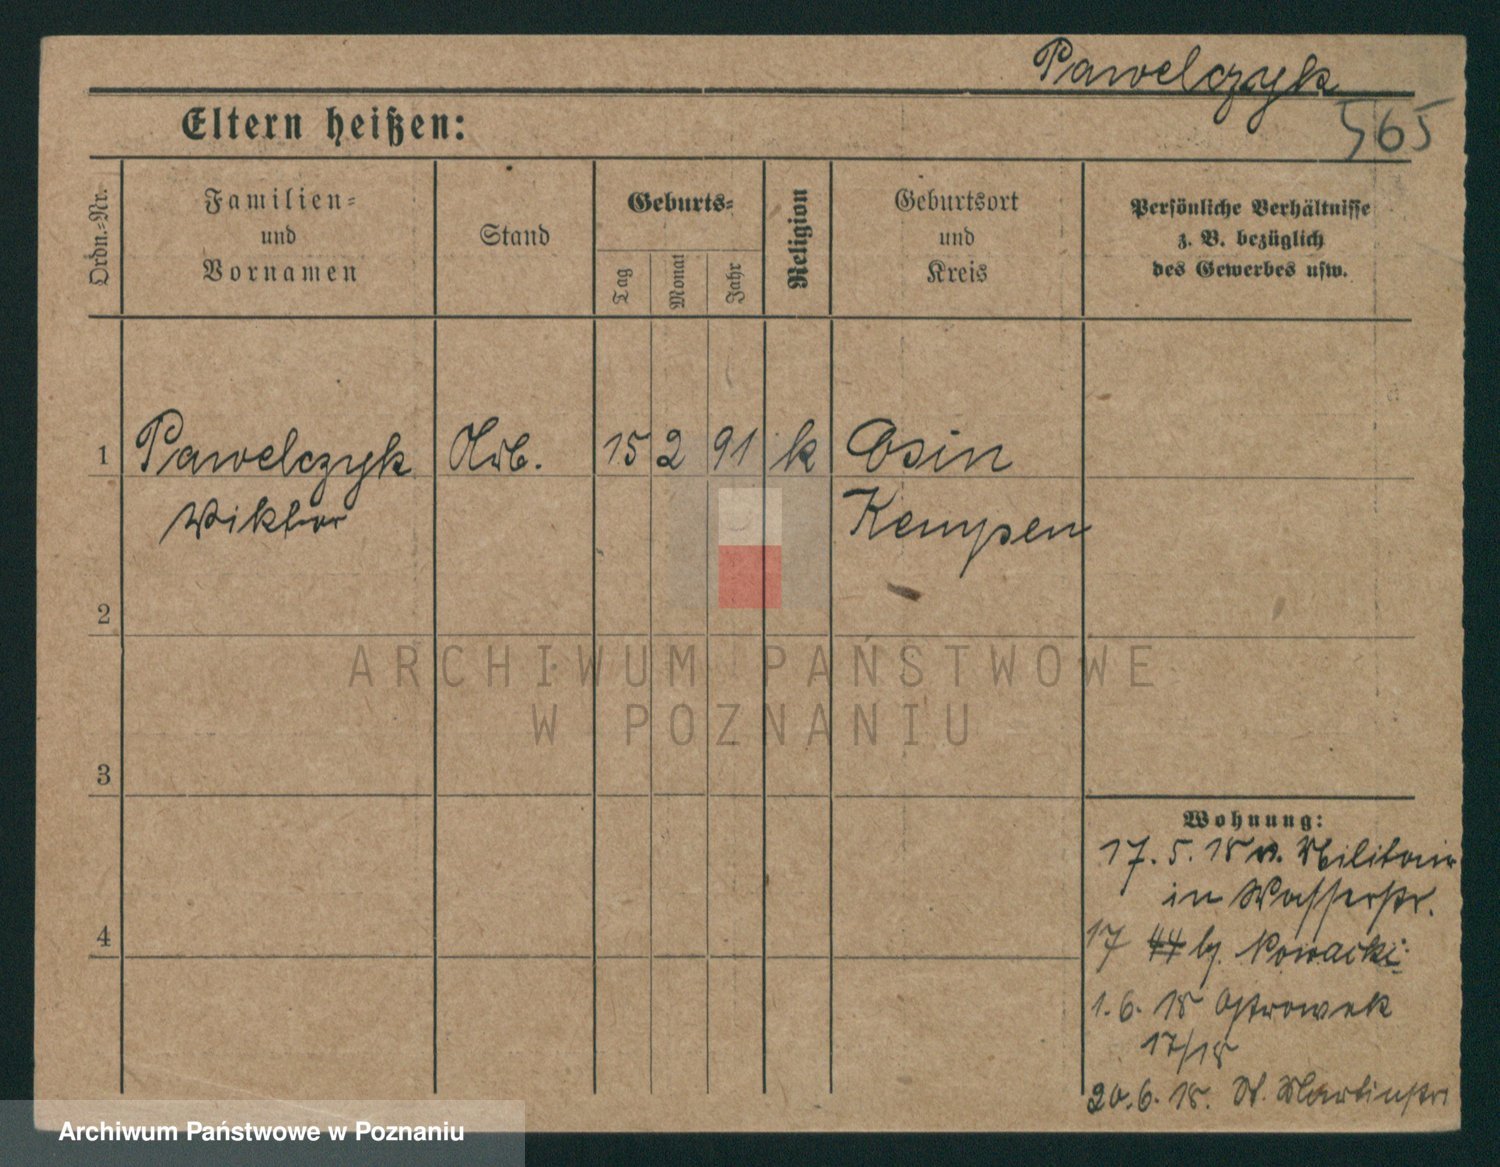 Pawelczyk
565
Eltern heißen:
Ordn.-Nr.
Familien-
und
Vornamen
Stand
Geburts-
Tag
Monat
Jahr
Religion
Geburtsort
und
Kreis
Persönliche Verhältnisse
z. B. bezüglich
des Gewerbes usw.
1 Pawelczyk Arb. 15 2 91 k Osin
Wiktor Kempen
2
3
4
ARCHIWUM PAŃSTWOWE
W POZNANIU
Wohnung:
17. 5. 18 v. Militair
in Wasserstr.
17 b. Nowacki
1. 6. 18 Ostrowek
17/18
20. 6. 18. St. Martinstr
Archiwum Państwowe w Poznaniu